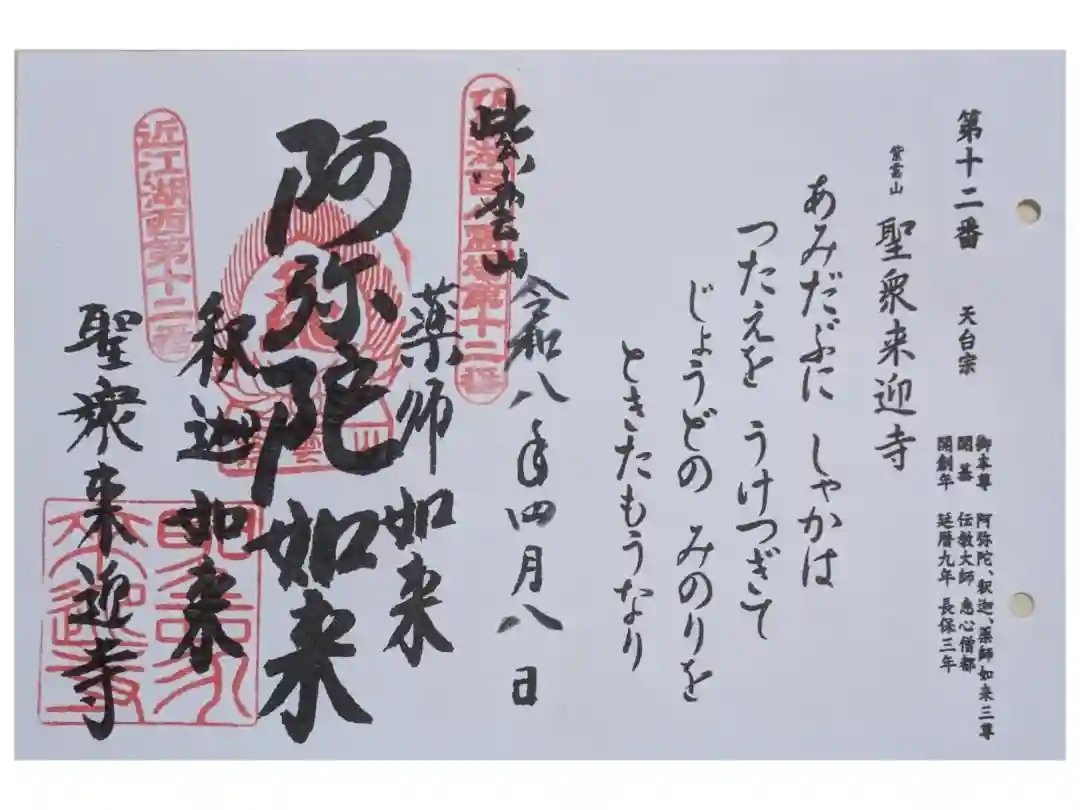 第十二番 天台宗
御本尊 阿弥陀、釈迦、薬師如来三尊
開基 伝教大師 恵心僧都
開創年 延暦九年 長保三年
紫雲山 聖衆来迎寺
あみだぶに しゃかは
つたえを うけつぎて
じょうどの みのりを
ときたもうなり
令和八年四月八日
紫雲山
薬師如来
阿弥陀如来
釈迦如来
聖衆来迎寺
近江湖西第十二番